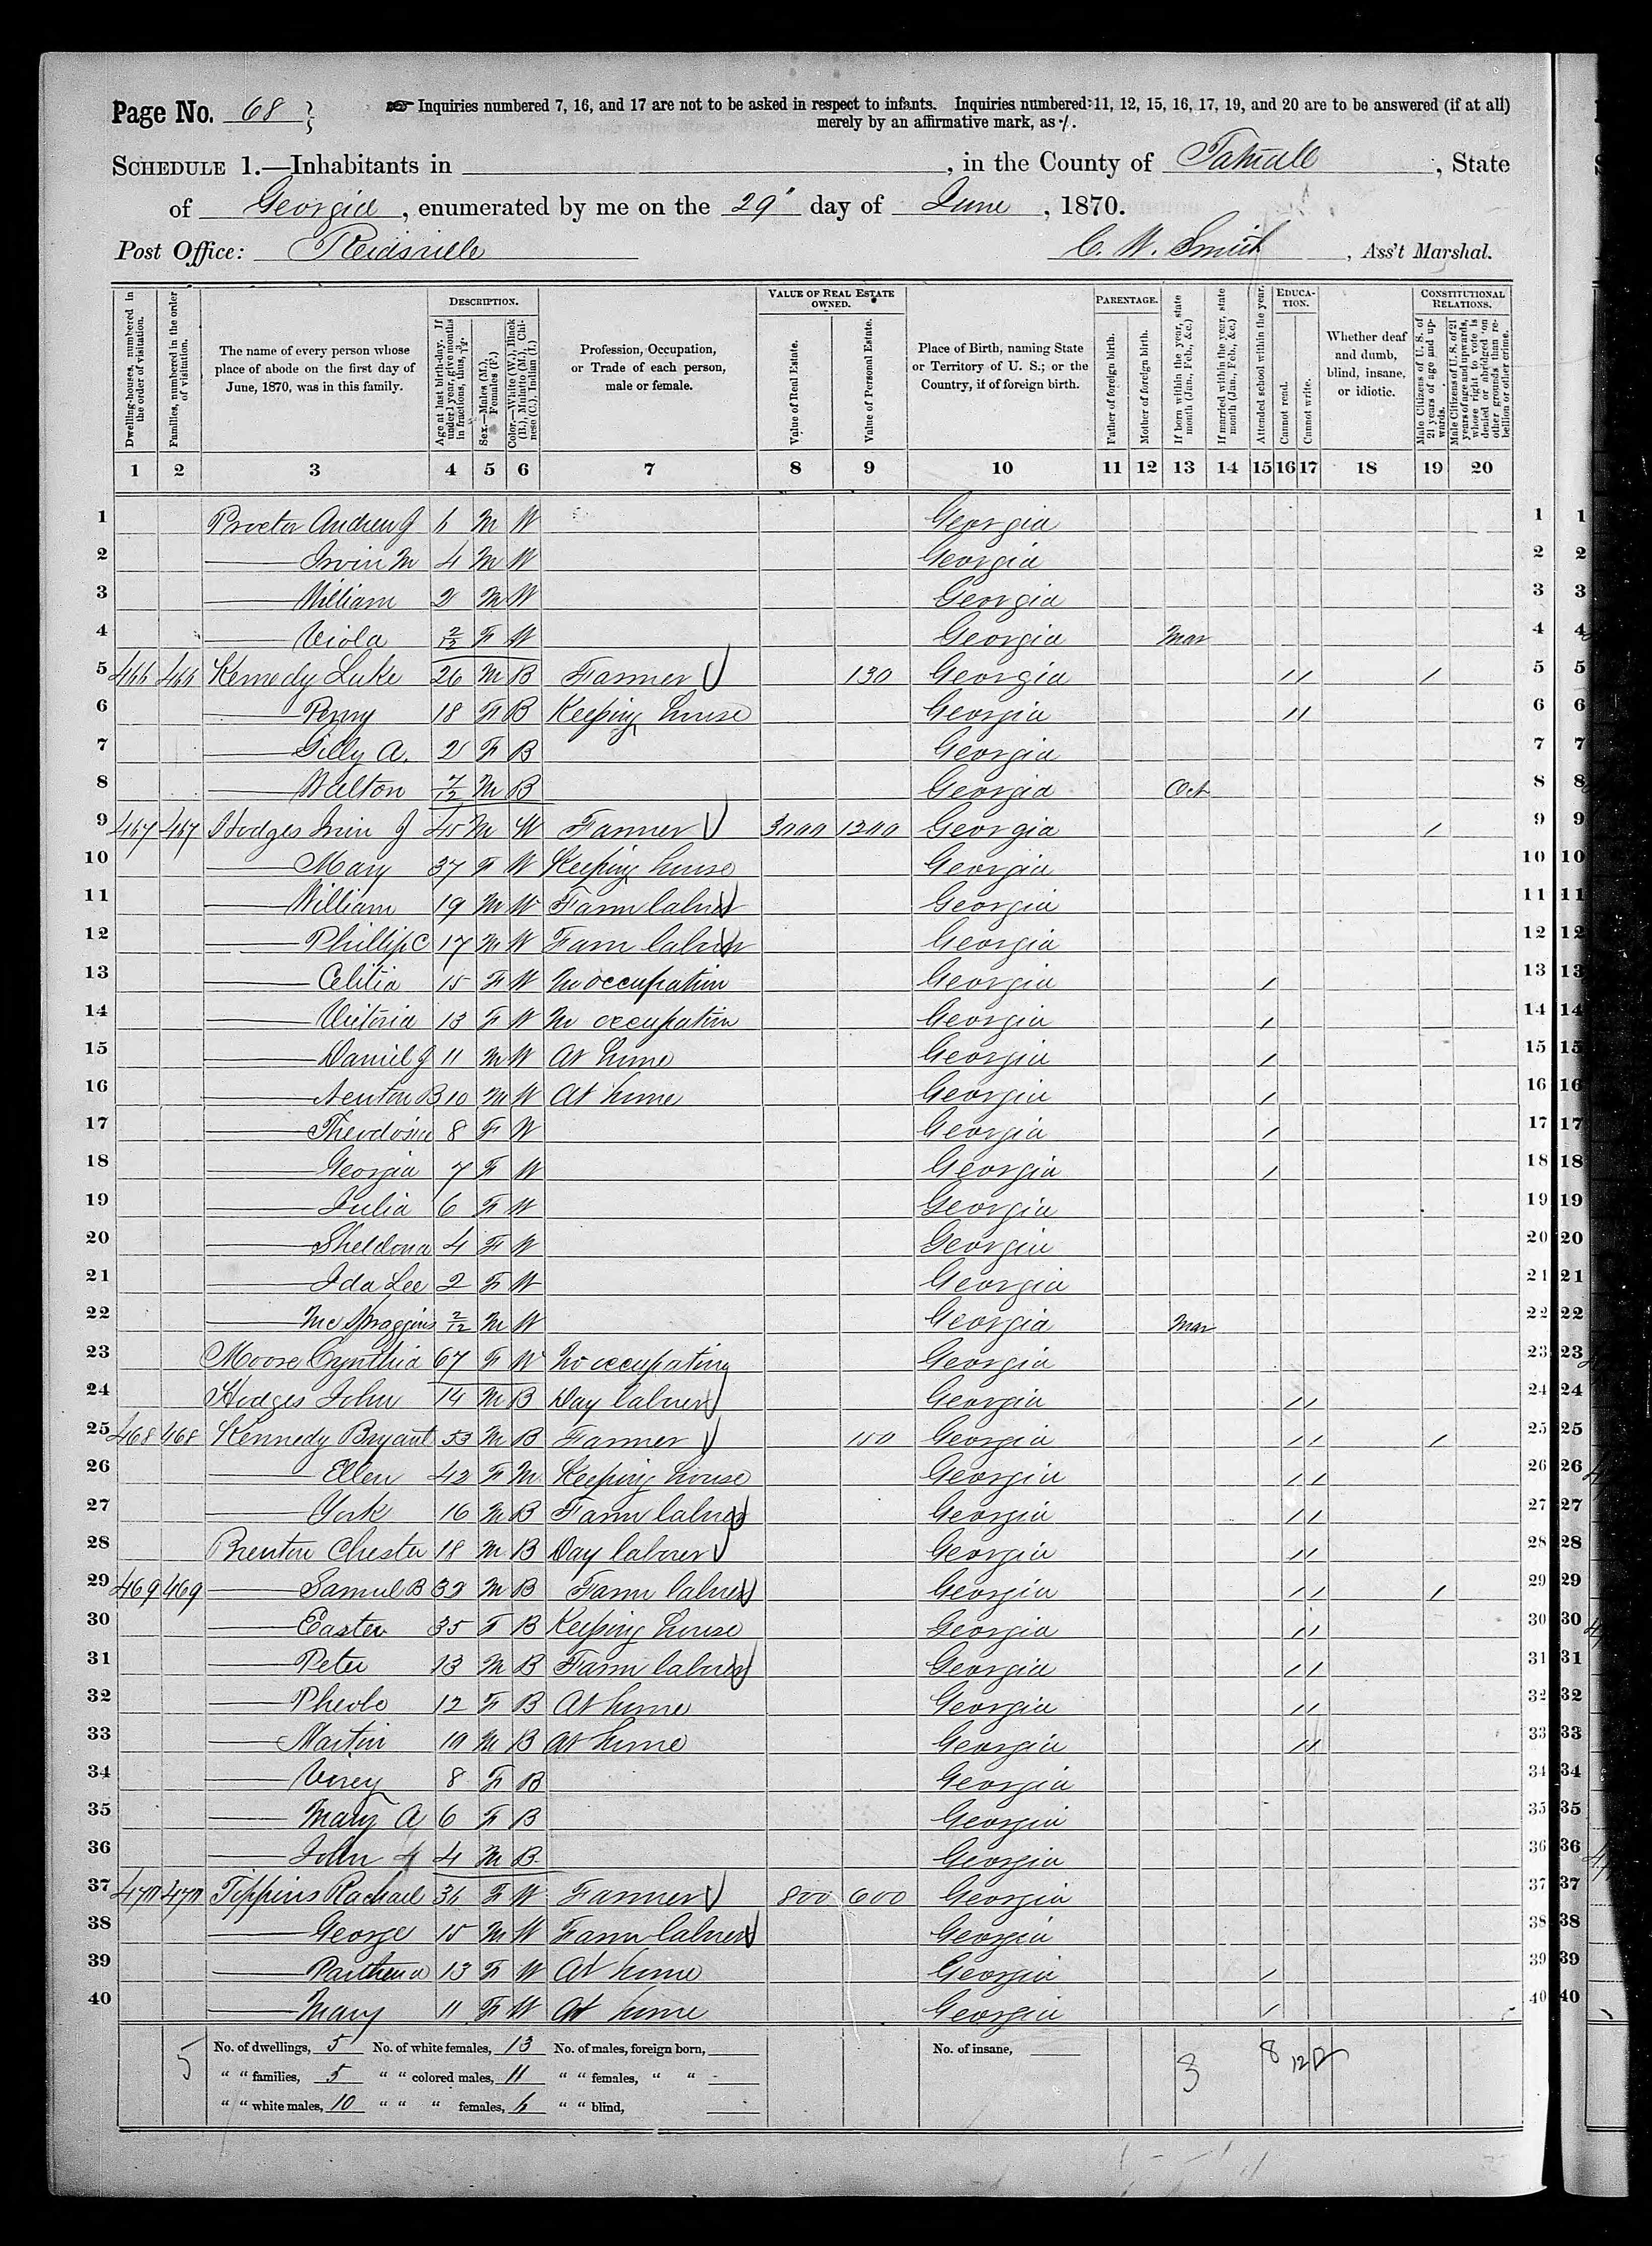 Page No. 68 Inquiries numbered 7, 16, and 17 are not to be asked in respect to infants. Inquiries numbered 11, 12, 15, 16, 17, 19, and 20 are to be answered (if at all)
merely by an affirmative mark, as /.
SCHEDULE 1.—Inhabitants in , in the County of Tatnall, State
of Georgia, enumerated by me on the 29" day of June, 1870.
Post Office: Reidsville C. W. Smith, Ass't Marshal.
Dwelling-houses, numbered in the order of visitation.
Families, numbered in the order of visitation.
The name of every person whose place of abode on the first day of June, 1870, was in this family.
DESCRIPTION.
Age at last birth-day. If under 1 year, give months in fractions, thus, 3/12.
Sex.—Males (M.), Females (F.)
Color.—White (W.), Black (B.), Mulatto (M.), Chinese (C.), Indian (I.)
Profession, Occupation, or Trade of each person, male or female.
VALUE OF REAL ESTATE OWNED.
Value of Real Estate.
Value of Personal Estate.
Place of Birth, naming State or Territory of U. S.; or the Country, if of foreign birth.
PARENTAGE.
Father of foreign birth.
Mother of foreign birth.
If born within the year, state month (Jan., Feb., &c.)
If married within the year, state month (Jan., Feb., &c.)
Attended school within the year.
EDUCATION.
Cannot read.
Cannot write.
Whether deaf and dumb, blind, insane, or idiotic.
CONSTITUTIONAL RELATIONS.
Male Citizens of U. S. of 21 years of age and upwards.
Male Citizens of U. S. of 21 years of age and upwards, whose right to vote is denied or abridged on other grounds than rebellion or other crime.
1 2 3 4 5 6 7 8 9 10 11 12 13 14 15 16 17 18 19 20
1 Proctor Andrew J 6 M W Georgia 1
2 —— Irvin M 4 M W Georgia 2
3 —— William 2 M W Georgia 3
4 —— Viola 2/12 F W Georgia Mar 4
5 466 466 Kennedy Luke 26 M B Farmer 130 Georgia / / / 5
6 —— Penny 18 F B Keeping house Georgia / / 6
7 —— Gilly A. 2 F B Georgia 7
8 —— Walton 7/12 M B Georgia Oct 8
9 467 467 Hodges Irvin J 45 M W Farmer 3000 1200 Georgia / 9
10 —— Mary 37 F W Keeping house Georgia 10
11 —— William 19 M W Farm laborer Georgia 11
12 —— Phillip C 17 M W Farm laborer Georgia 12
13 —— Celitia 15 F W No occupation Georgia / 13
14 —— Victoria 13 F W No occupation Georgia / 14
15 —— Daniel J 11 M W At home Georgia / 15
16 —— Newton B 10 M W At home Georgia / 16
17 —— Theodosia 8 F W Georgia / 17
18 —— Georgia 7 F W Georgia / 18
19 —— Julia 6 F W Georgia 19
20 —— Sheldona 4 F W Georgia 20
21 —— Ida Lee 2 F W Georgia 21
22 —— McSpraggins 2/12 M W Georgia Mar 22
23 Moore Cynthia 67 F W No occupation Georgia 23
24 Hodges John 14 M B Day laborer Georgia / / 24
25 468 468 Kennedy Bryant 53 M B Farmer 100 Georgia / / / 25
26 —— Ellen 42 F M Keeping house Georgia / / 26
27 —— York 16 M B Farm laborer Georgia / / 27
28 Brenton Chester 18 M B Day laborer Georgia / / 28
29 469 469 —— Samuel B 32 M B Farm laborer Georgia / / / 29
30 —— Easter 35 F B Keeping house Georgia / / 30
31 —— Peter 13 M B Farm laborer Georgia / / 31
32 —— Pheobe 12 F B At home Georgia / / 32
33 —— Martin 10 M B At home Georgia / / 33
34 —— 8 F B Georgia 34
35 —— Mary A 6 F B Georgia 35
36 —— John 4 M B Georgia 36
37 470 470 Tippins Rachael 36 F W Farmer 800 600 Georgia 37
38 —— George 15 M W Farm laborer Georgia 38
39 —— Parthena 13 F W At home Georgia / 39
40 —— Mary 11 F W At home Georgia / 40
5 No. of dwellings, 5 No. of white females, 13 No. of males, foreign born, No. of insane, 3 8 12
" " families, 5 " " colored males, 11 " " females, " "
" " white males, 10 " " " females, 6 " " blind,